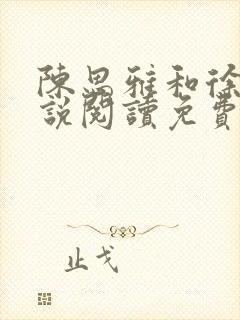 陳思雅和徐
說閱讀免費
止戈